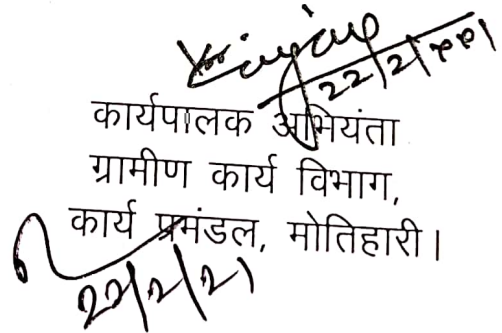 22/2/2021
कार्यपालक अभियंता
ग्रामीण कार्य विभाग,
कार्य प्रमंडल, मोतिहारी।
22/2/21